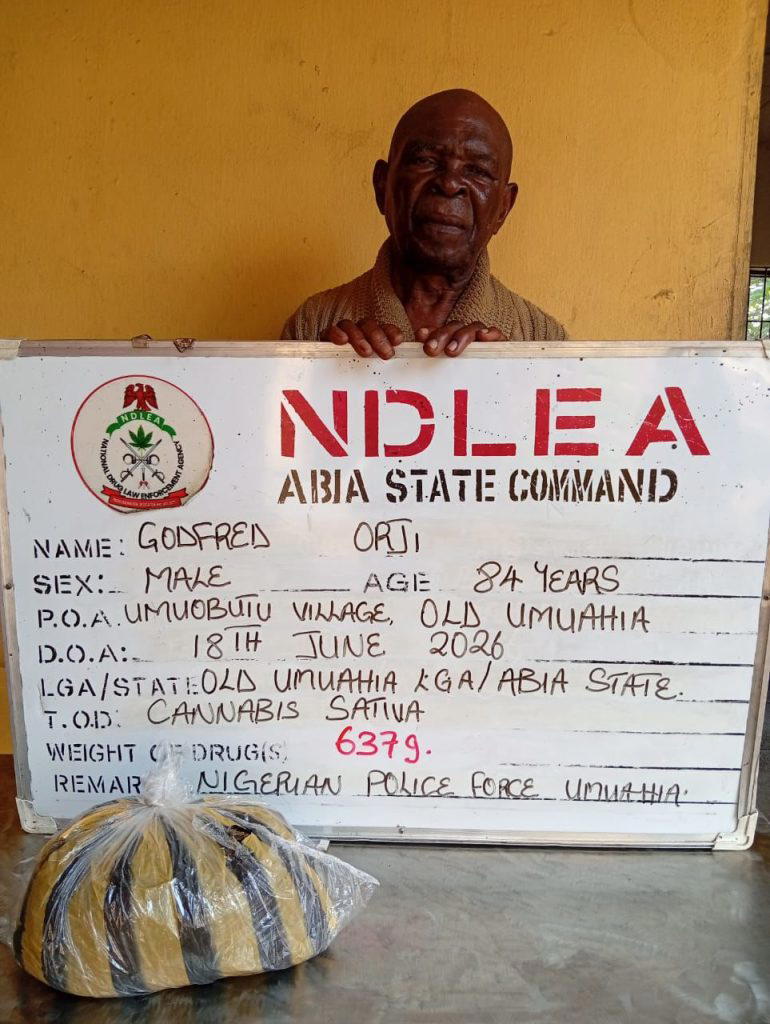 NDLEA
NATIONAL DRUG LAW ENFORCEMENT AGENCY
NDLEA
ABIA STATE COMMAND
NAME: GODFRED ORJI
SEX: MALE AGE 84 YEARS
P.O.A. UMUOBUTU VILLAGE, OLD UMUAHIA
D.O.A: 18TH JUNE 2026
LGA/STATE OLD UMUAHIA LGA/ABIA STATE.
T.O.D: CANNABIS SATIVA
WEIGHT OF DRUG(S) 637g.
REMAR NIGERIAN POLICE FORCE UMUAHIA.